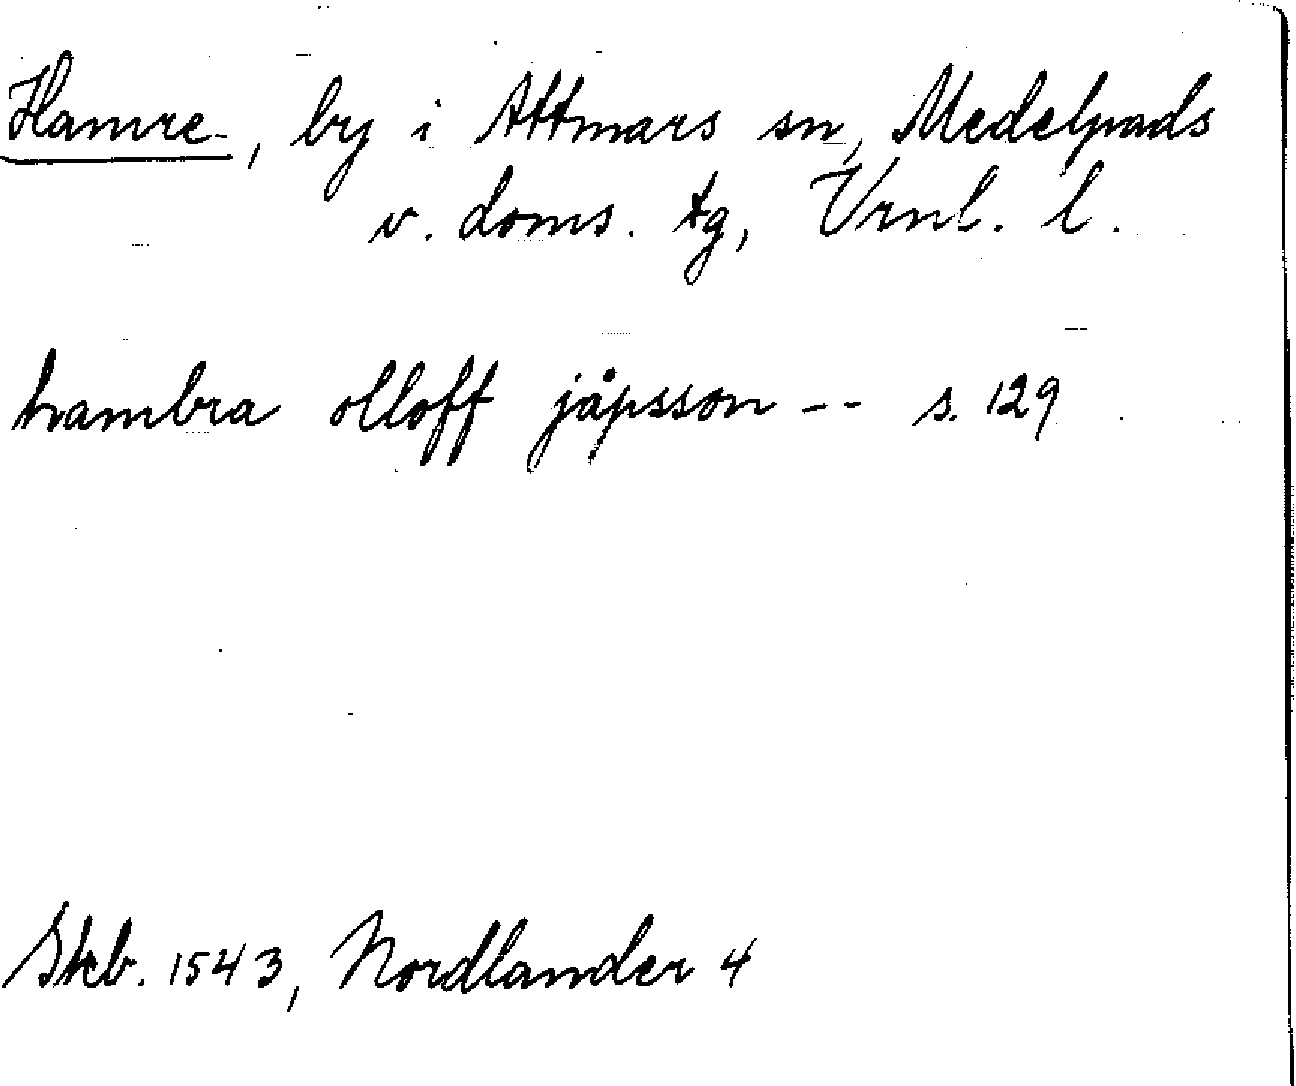 Hamre, by i Attmars sn, Medelpads
v. doms. tg, Vrnl. l.
hambra olloff jåpsson -- s. 129
Skb. 1543, Nordlander 4